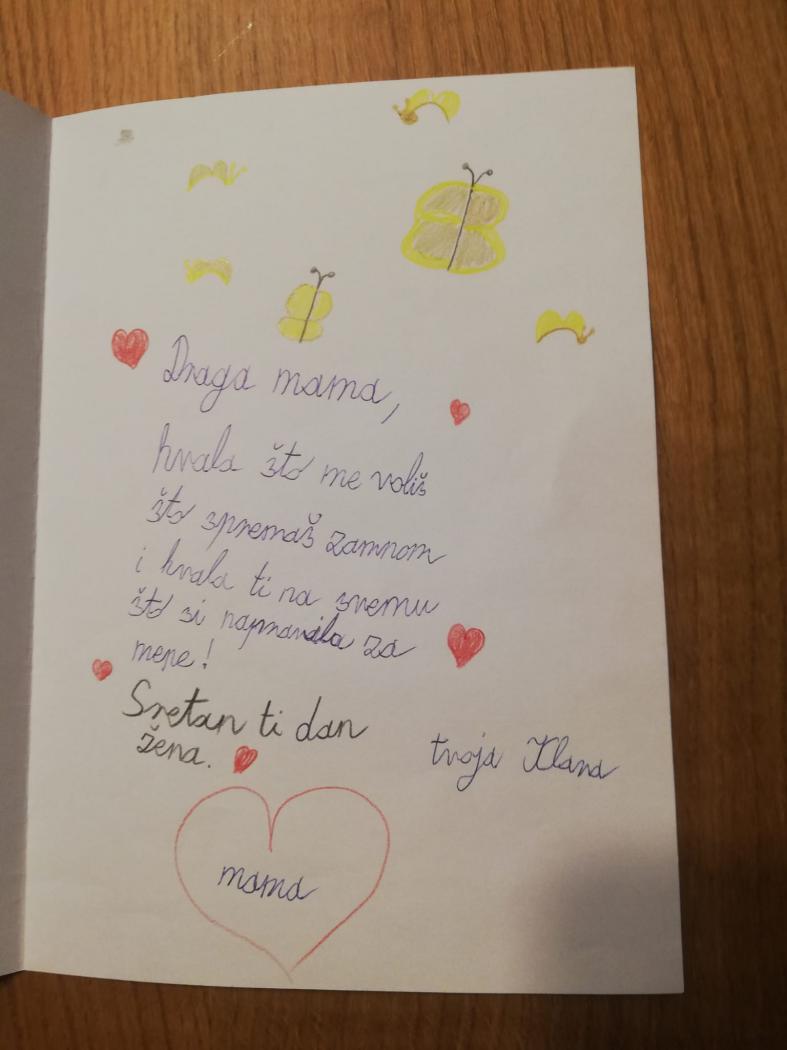 Draga mama,
hvala što me voliš
što spremaš zamnom
i hvala ti na svemu
što si napravila za
mene!
Sretan ti dan
žena.
tvoja Klara
mama